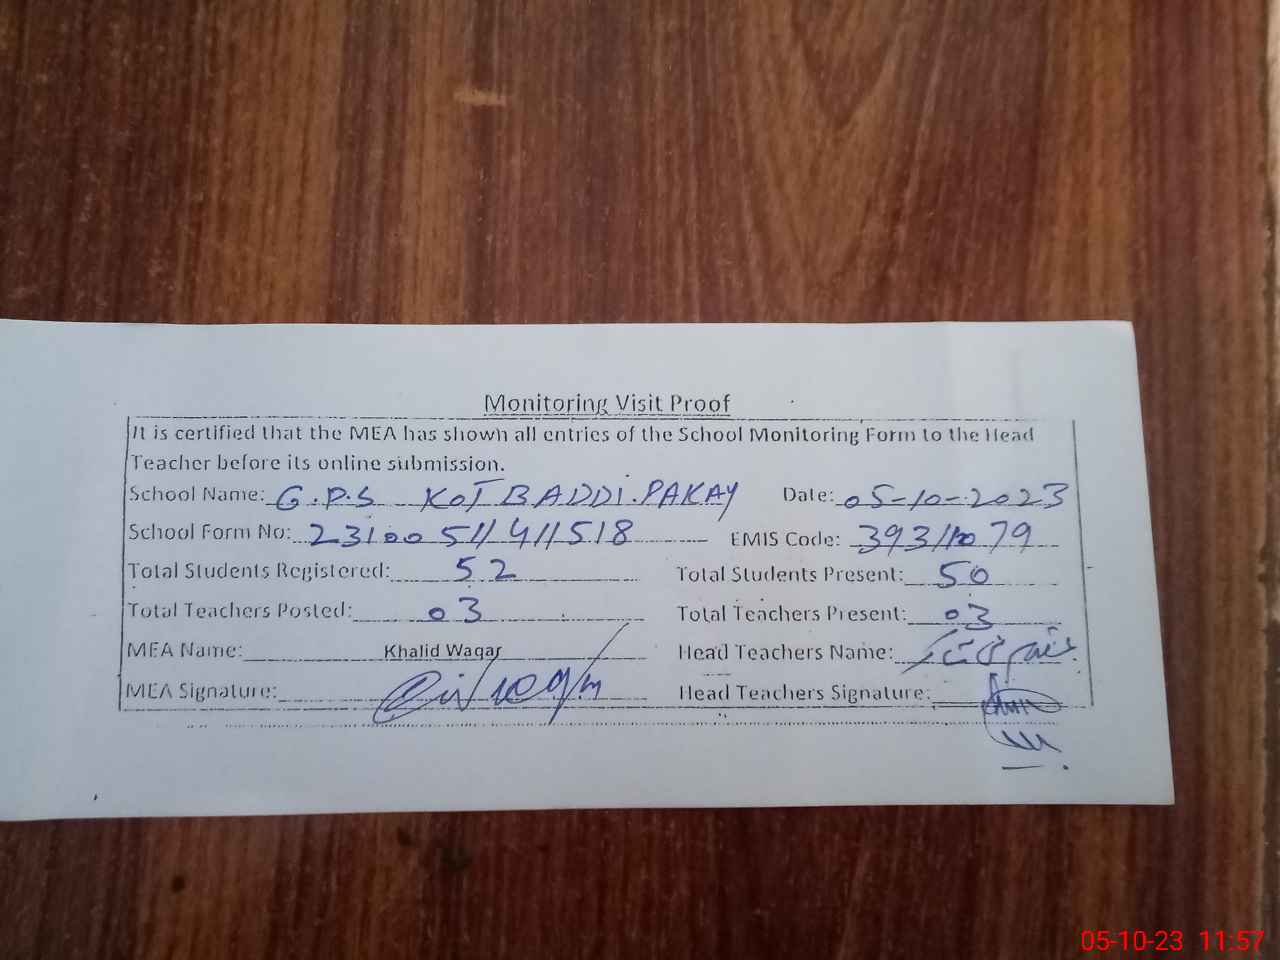 Monitoring Visit Proof
It is certified that the MEA has shown all entries of the School Monitoring Form to the Head
Teacher before its online submission.
School Name: G.P.S KOT BADDI.PAKAY Date: 05-10-2023
School Form No: 23100511411518 EMIS Code:
Total Students Registered: 52 Total Students Present: 50
Total Teachers Posted: 03 Total Teachers Present: 03
MEA Name: Khalid Waqar Head Teachers Name:
MEA Signature: Head Teachers Signature:
05-10-23 11:57